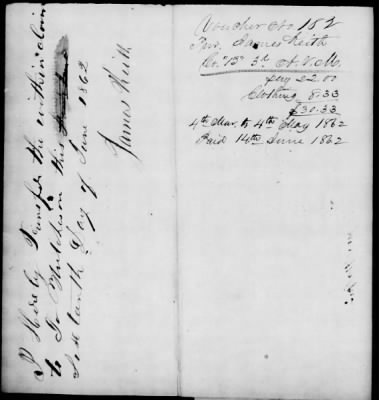 I Hereby Transfer the within claim
to Jo Hutcheson this
Day of June 1862
James Keith
Voucher No 152
Pvt. James Keith
Co. "B" 3d
pay 22.00
Clothing 8.33
$30.33
4th Mar. to 4th May 1862
Paid 14th June 1862